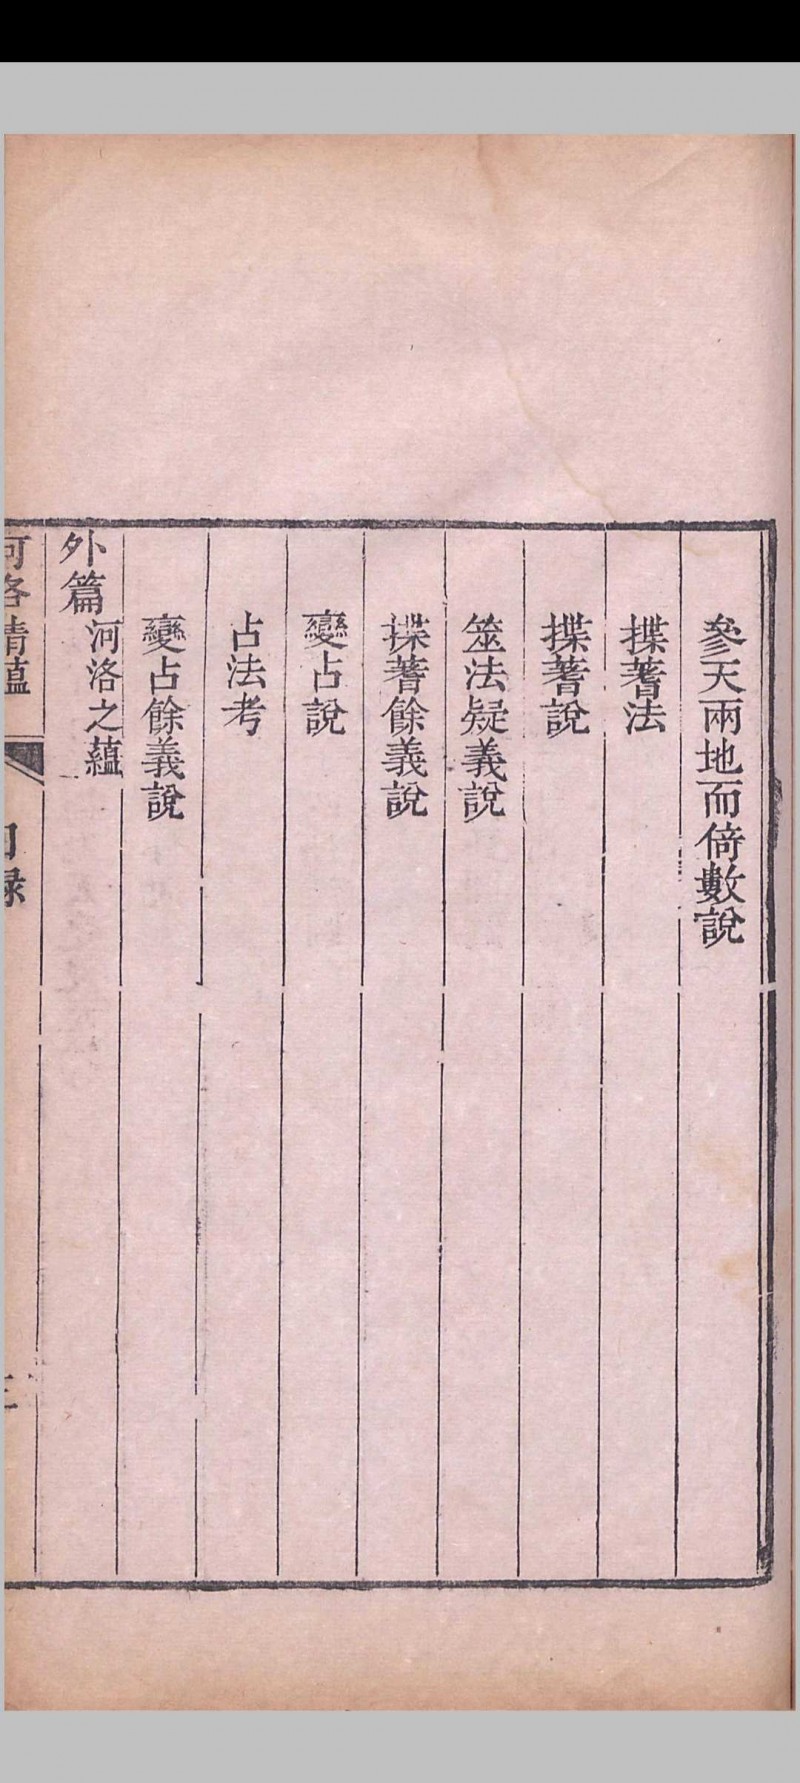 參天兩地而倚數說
揲蓍法
揲蓍說
筮法疑義說
揲蓍餘義說
變占說
占法考
變占餘義說
外篇 河洛之蘊
河洛精蘊
目錄